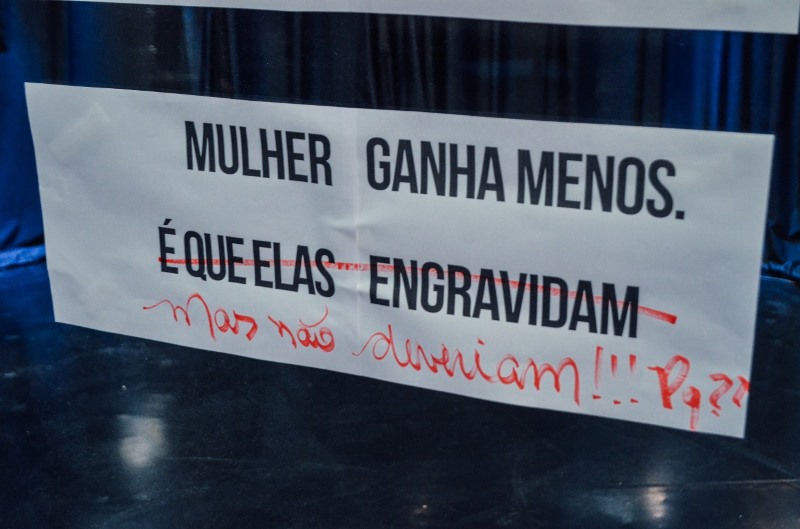 MULHER GANHA MENOS.
É QUE ELAS ENGRAVIDAM
Mas não deveriam!!! Pq??